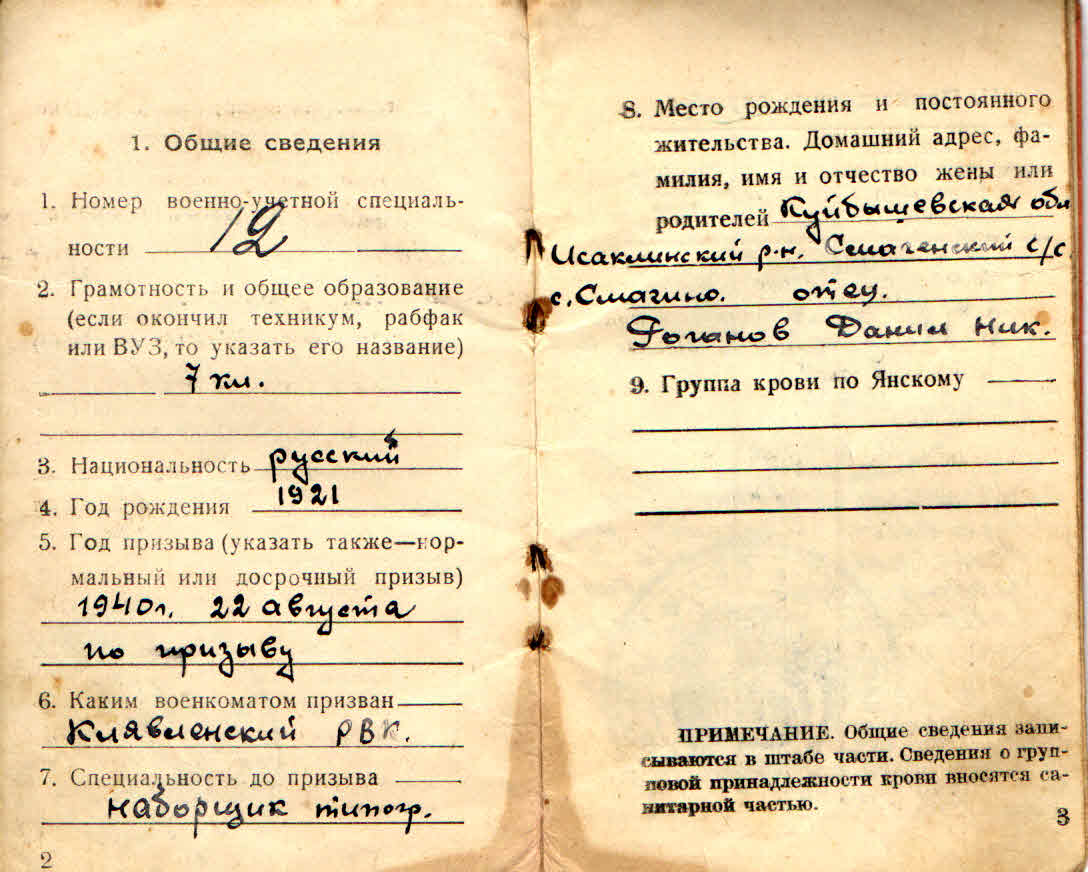 1. Общие сведения
1. Номер военно-учетной специаль-
ности 12
2. Грамотность и общее образование
(если окончил техникум, рабфак
или ВУЗ, то указать его название)
7 кл.
3. Национальность русский
4. Год рождения 1921
5. Год призыва (указать также—нор-
мальный или досрочный призыв)
1940г. 22 августа
по призыву
6. Каким военкоматом призван
Клявленский РВК.
7. Специальность до призыва
наборщик типогр.
2
8. Место рождения и постоянного
жительства. Домашний адрес, фа-
милия, имя и отчество жены или
родителей Куйбышевская обл
Исаклинский р-н. Смагенский с/с
с. Смагино. отец.
Роганов Данил Ник.
9. Группа крови по Янскому
ПРИМЕЧАНИЕ. Общие сведения запи-
сываются в штабе части. Сведения о груп-
повой принадлежности крови вносятся са-
нитарной частью.
3